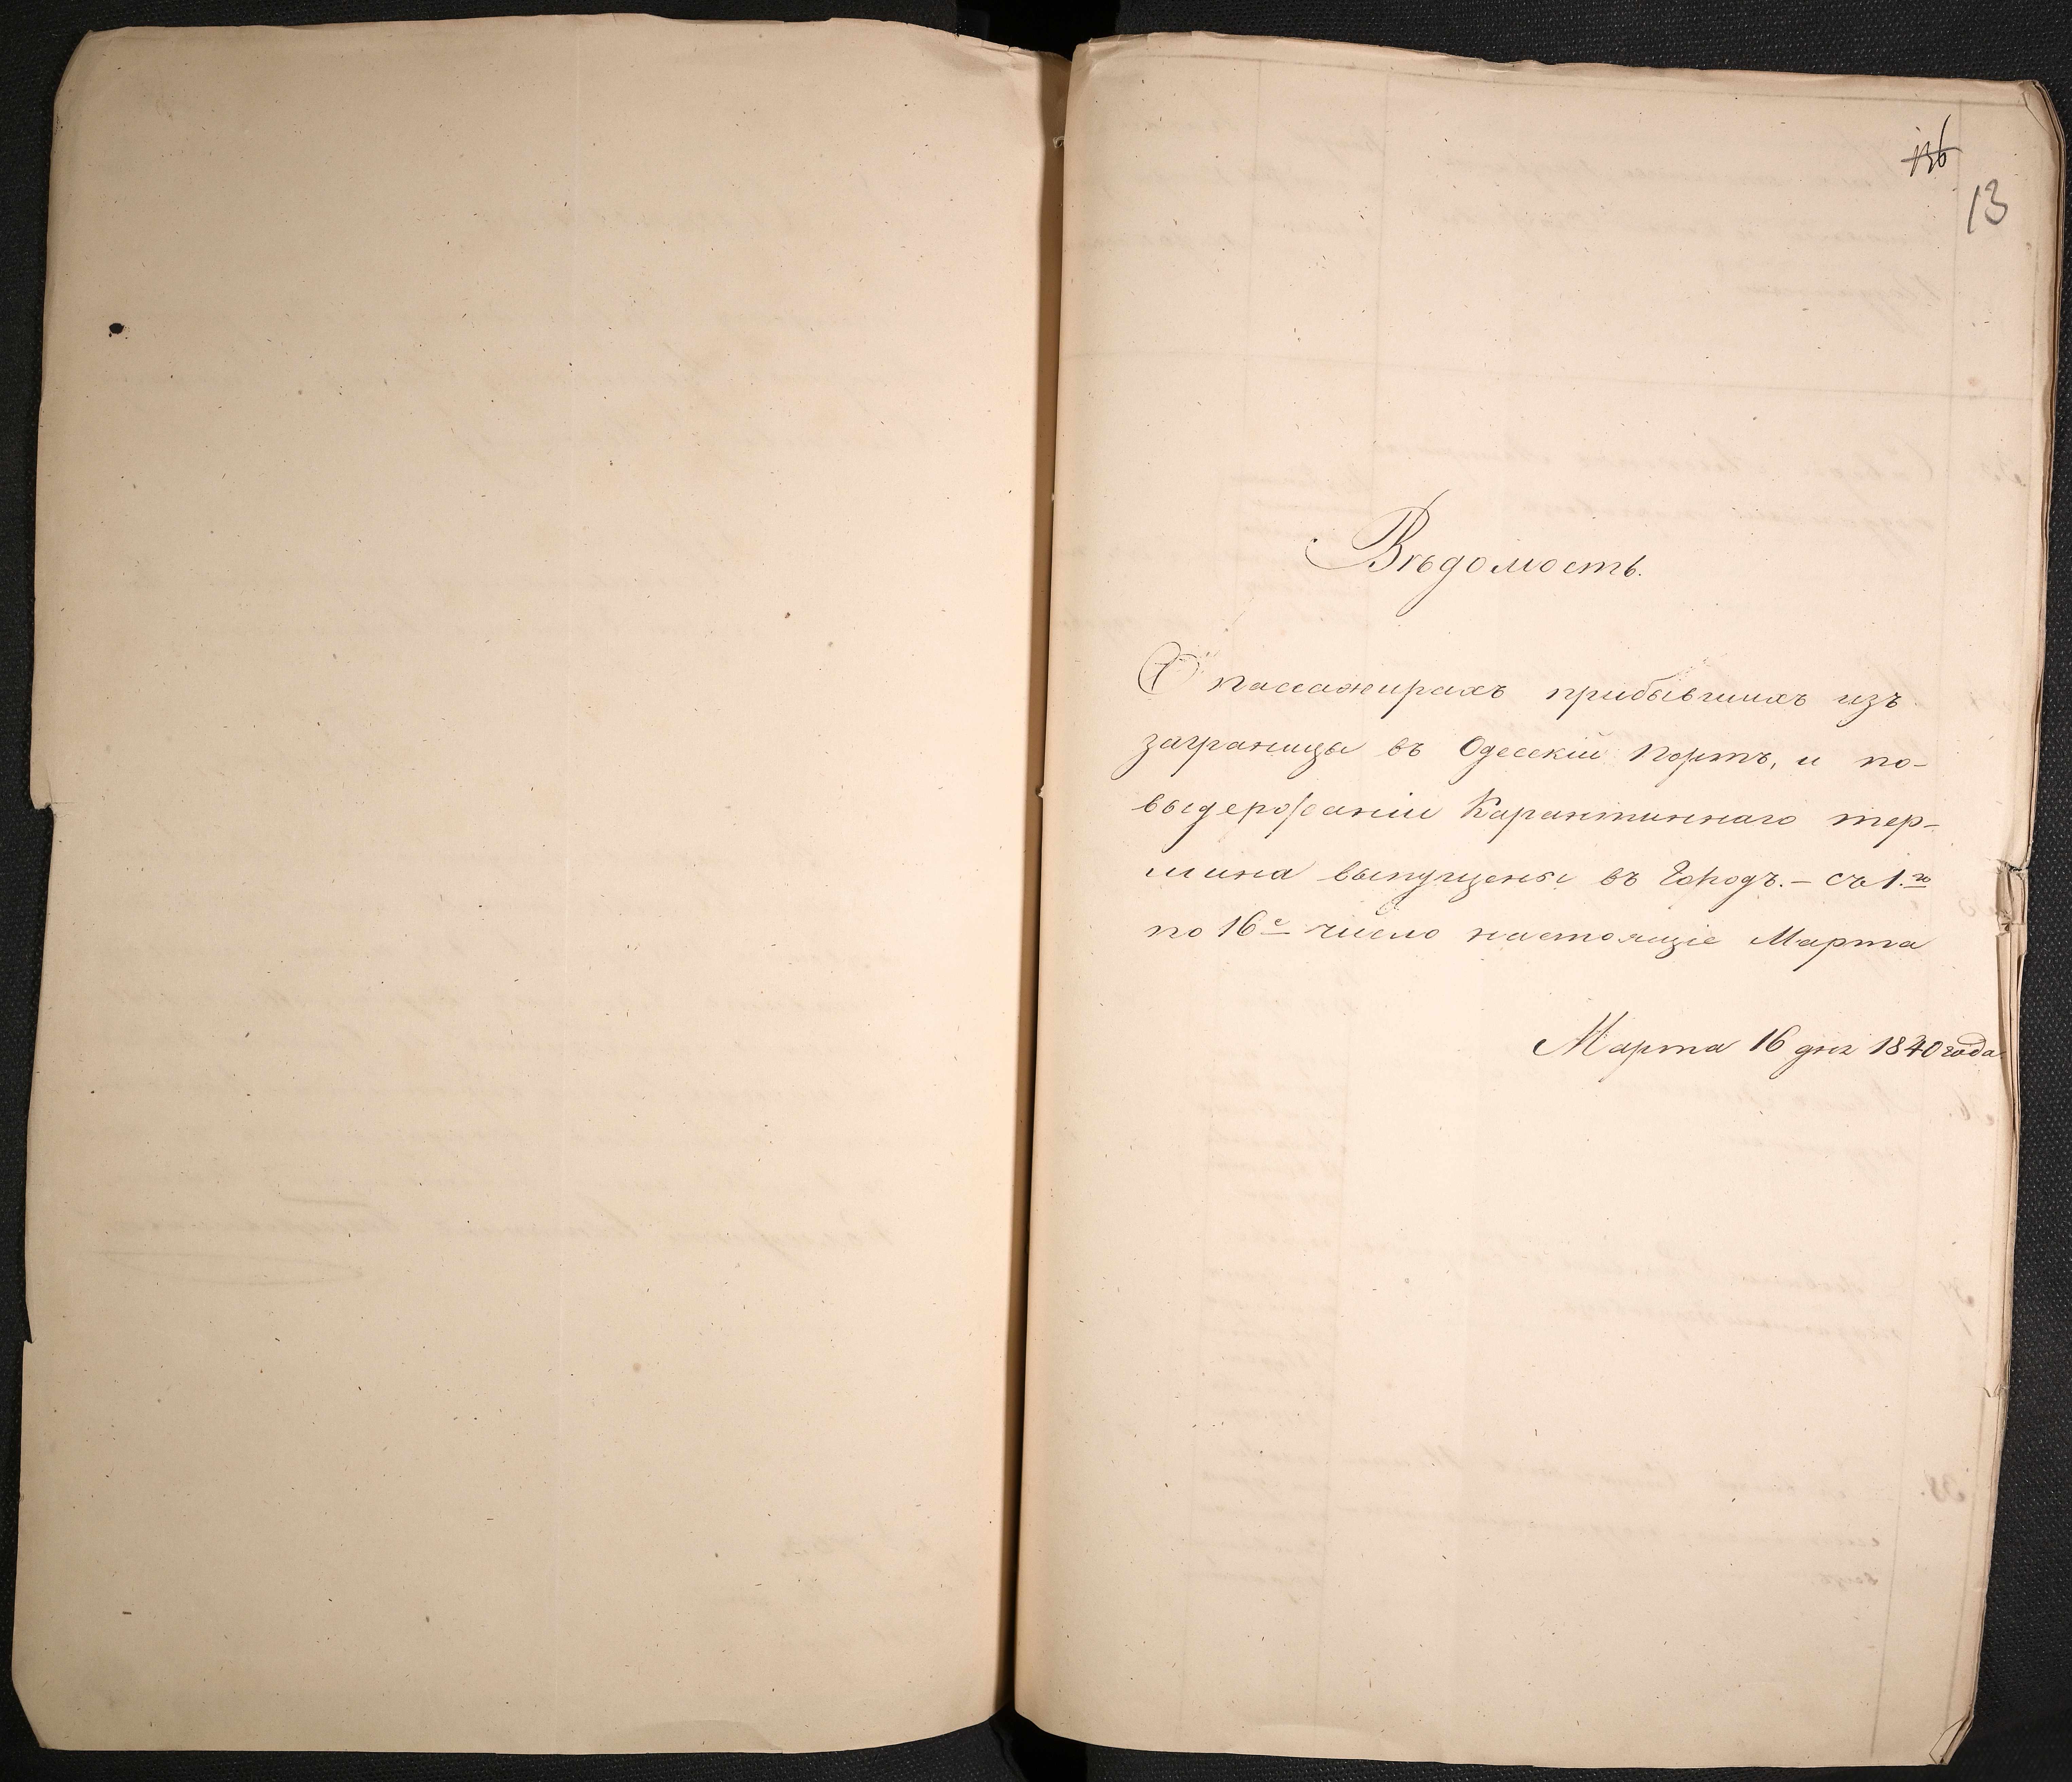 136
13
Вѣдомость.
О пассажирахъ прибывшихъ изъ
заграницы въ Одесскій Портъ, и по-
выдержаніи Карантиннаго тер-
мина выпущены въ Городъ. – съ 1.го
по 16е число настоящіе Марта
Марта 16 дня 1840 года